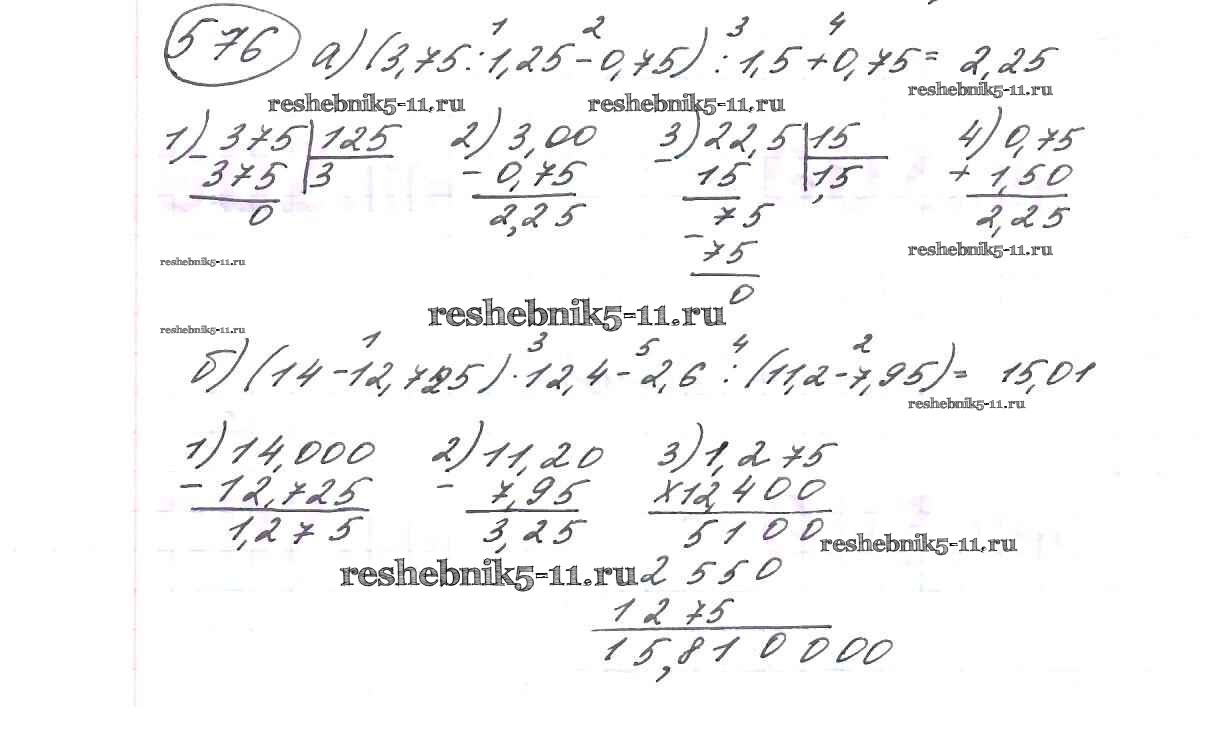 576 а) (3,75 : 1,25 - 0,75) : 1,5 + 0,75 = 2,25
1 2 3 4
reshebnik5-11.ru reshebnik5-11.ru reshebnik5-11.ru
1) 375 | 125 2) 3,00 3) 22,5 | 15 4) 0,75
- 375 | 3 - 0,75 - 15 | 1,5 + 1,50
0 2,25 75 2,25
reshebnik5-11.ru - 75 reshebnik5-11.ru
0
reshebnik5-11.ru
reshebnik5-11.ru
1 3 5 4 2
б) (14 - 12,725) · 12,4 - 2,6 : (11,2 - 7,95) = 15,01
reshebnik5-11.ru
1) 14,000 2) 11,20 3) 1,275
- 12,725 - 7,95 × 12,400
1,275 3,25 5100
reshebnik5-11.ru
reshebnik5-11.ru 2550
1275
15,810000